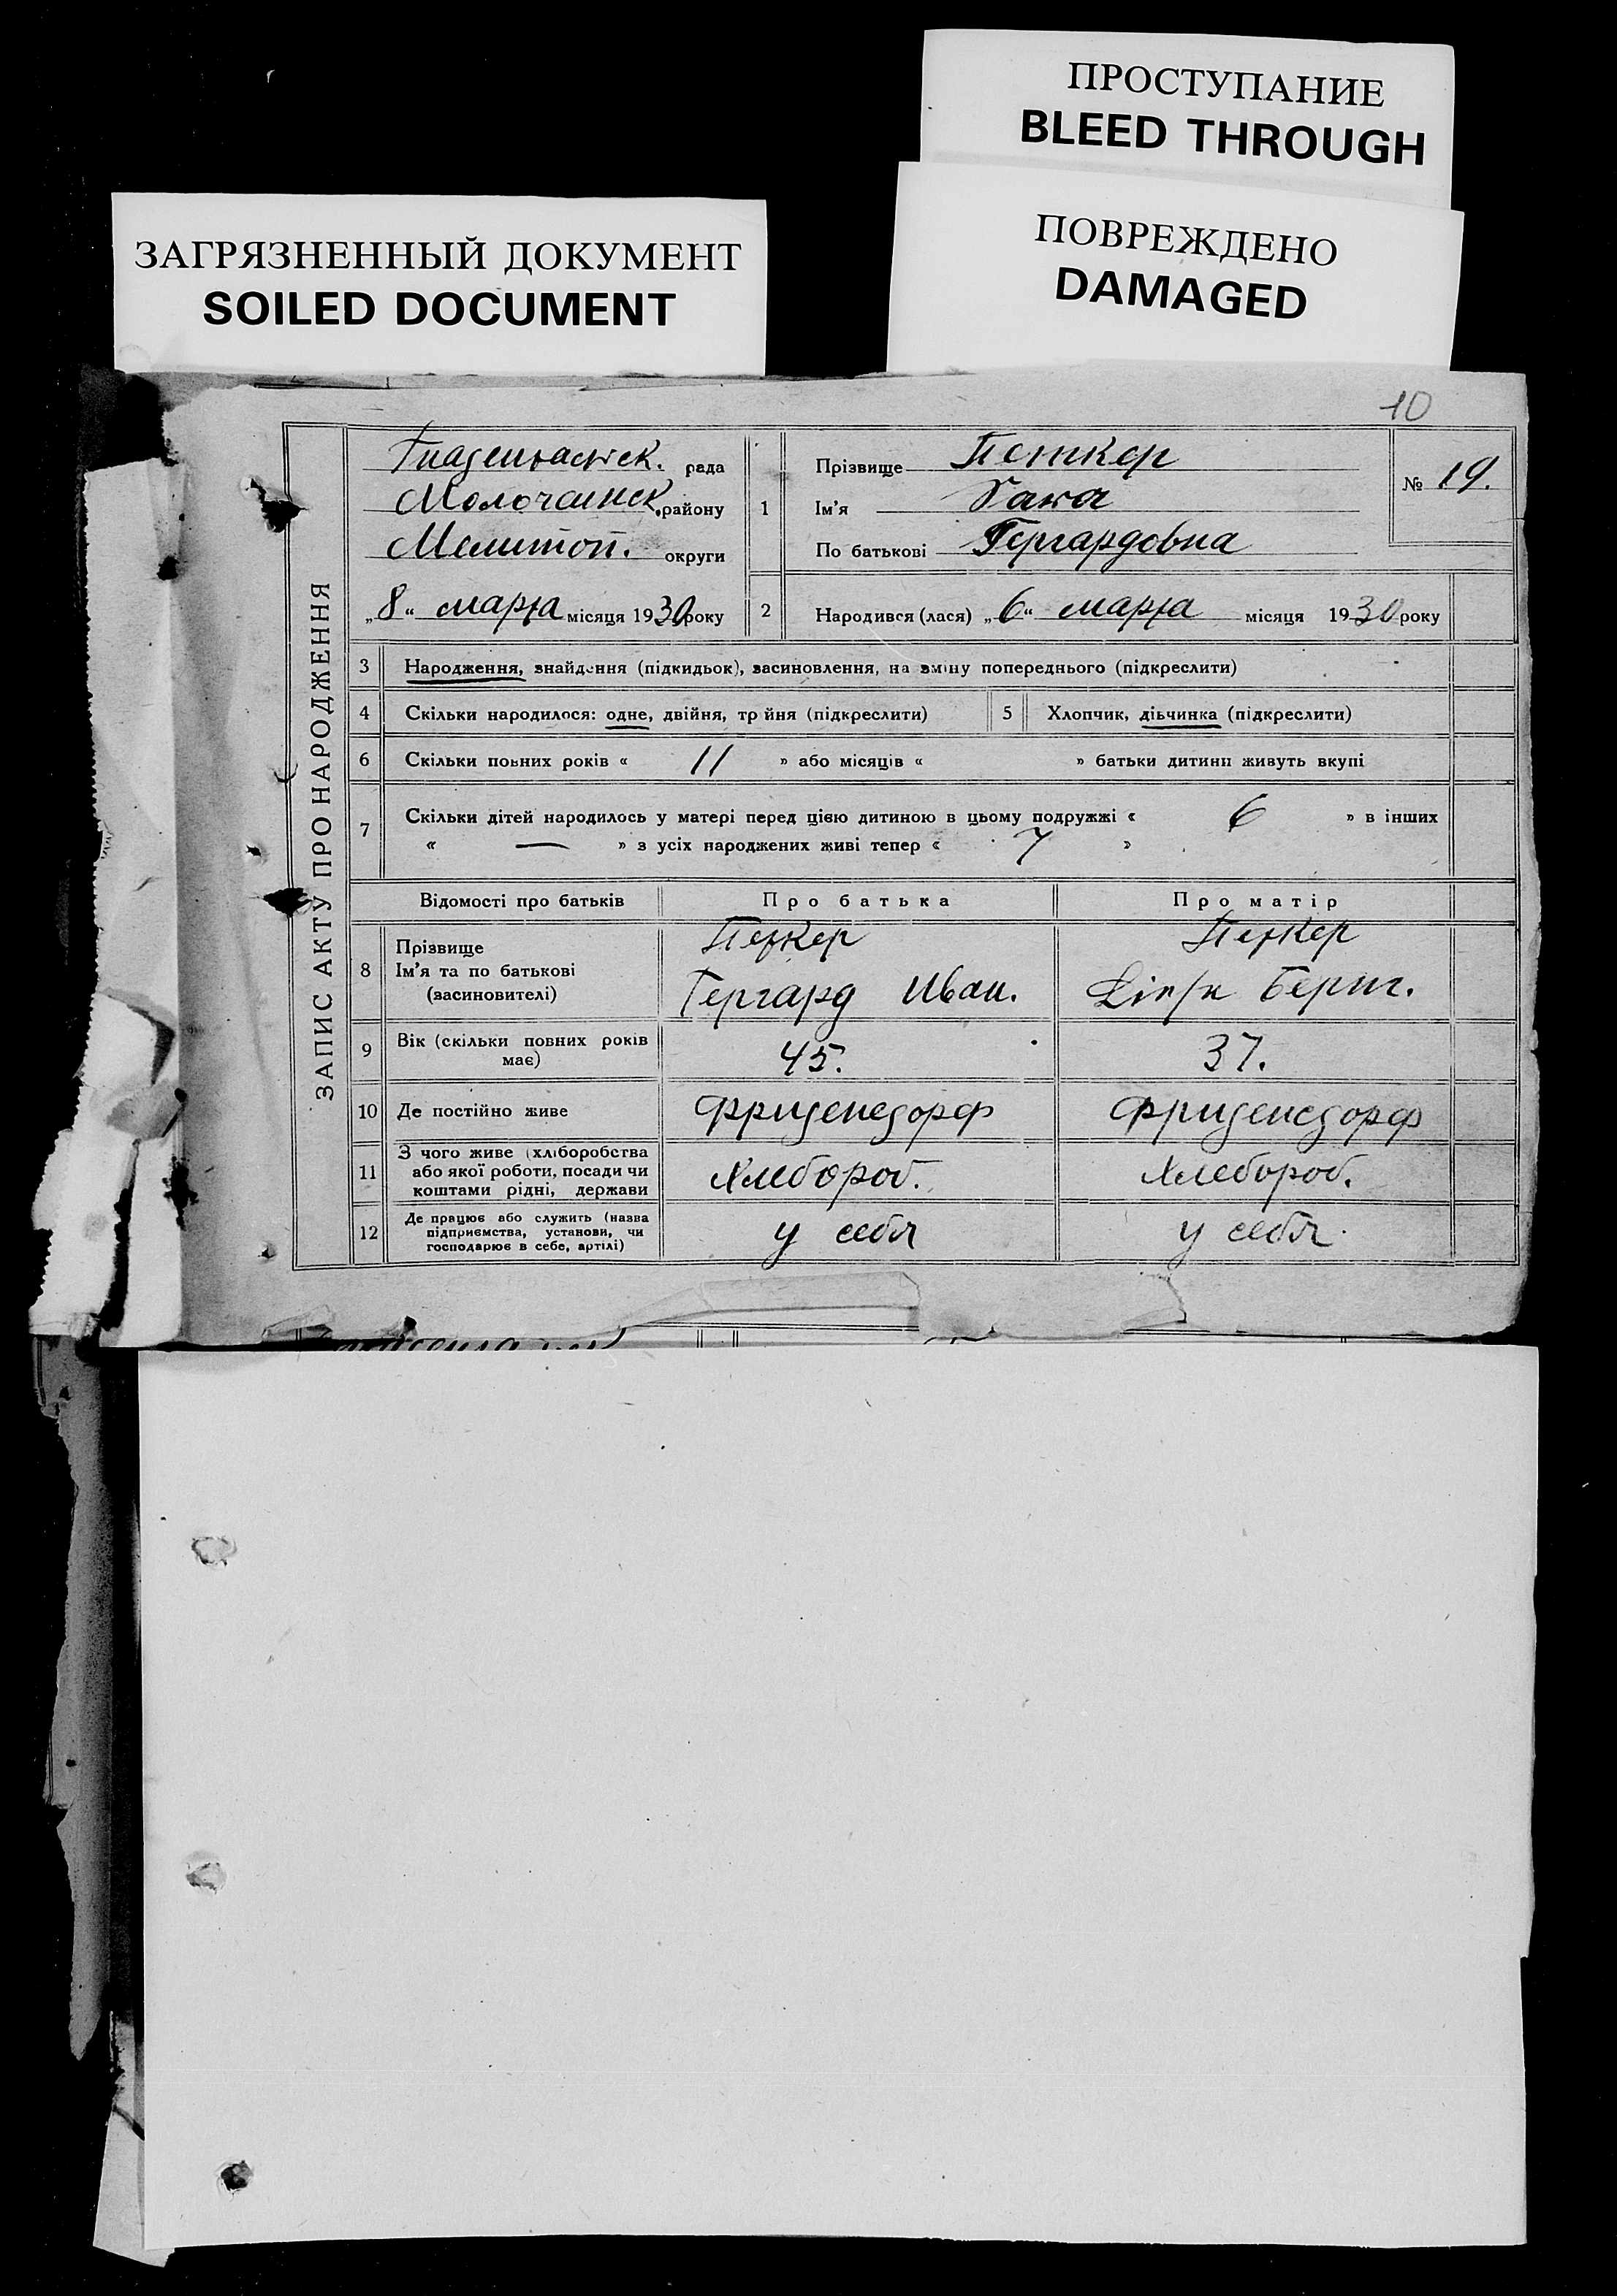 ПРОСТУПАНИЕ
BLEED THROUGH
ПОВРЕЖДЕНО
DAMAGED
ЗАГРЯЗНЕННЫЙ ДОКУМЕНТ
SOILED DOCUMENT
10
ЗАПИС АКТУ ПРО НАРОДЖЕННЯ
рада
Молочанск. району
Мелитоп. округи
„8“ марта місяця 1930 року
1
Прізвище Петкер
Ім'я
По батькові Гергардовна
№ 19.
2 Народився (лася) „6“ марта місяця 1930 року
3 Народження, знайдення (підкидьок), засиновлення, на зміну попереднього (підкреслити)
4 Скільки народилося: одне, двійня, трійня (підкреслити)
5 Хлопчик, дівчинка (підкреслити)
6 Скільки повних років « 11 » або місяців « » батьки дитини живуть вкупі
7 Скільки дітей народилось у матері перед цією дитиною в цьому подружжі « 6 » в інших
« — » з усіх народжених живі тепер « 7 »
Відомості про батьків Про батька Про матір
8 Прізвище
Ім'я та по батькові
(засиновителі)
Петкер
Гергард Иван.
Петкер
9 Вік (скільки повних років
має)
45.
37.
10 Де постійно живе Фриденсдорф Фриденсдорф
11 З чого живе (хліборобства
або якої роботи, посади чи
коштами рідні, держави
Хлебороб.
Хлебороб.
12 Де працює або служить (назва
підприємства, установи, чи
господарює в себе, артілі)
у себя
у себя